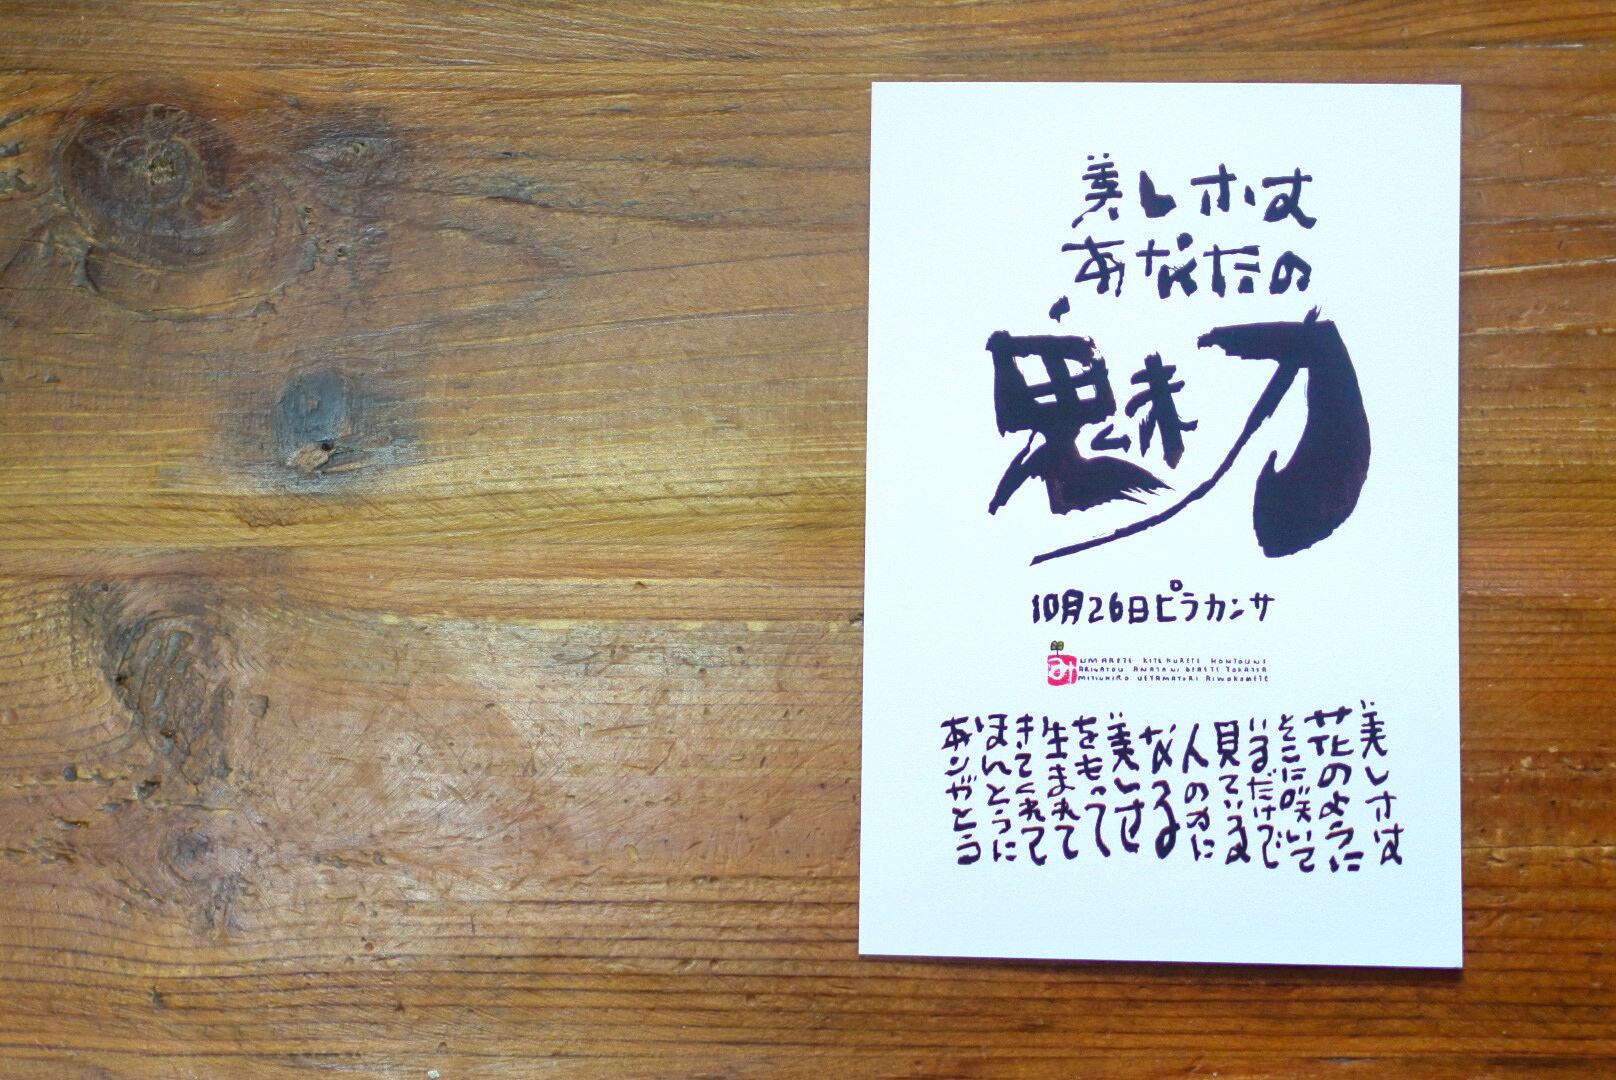 美しさは
あなたの
魅力
10月26日ピラカンサ
み
UMARETE KITEKURETE HONTOUNI
ARIGATOU ANATANI DEAETE YOKATTA
MITIHIRO UEYAMAYORI AIWOKOMETE
美しさは
花のように
そこに咲いて
いるだけで
見ている
人の力に
なる
美しさ
をもって
生まれて
きてくれて
ほんとうに
ありがとう